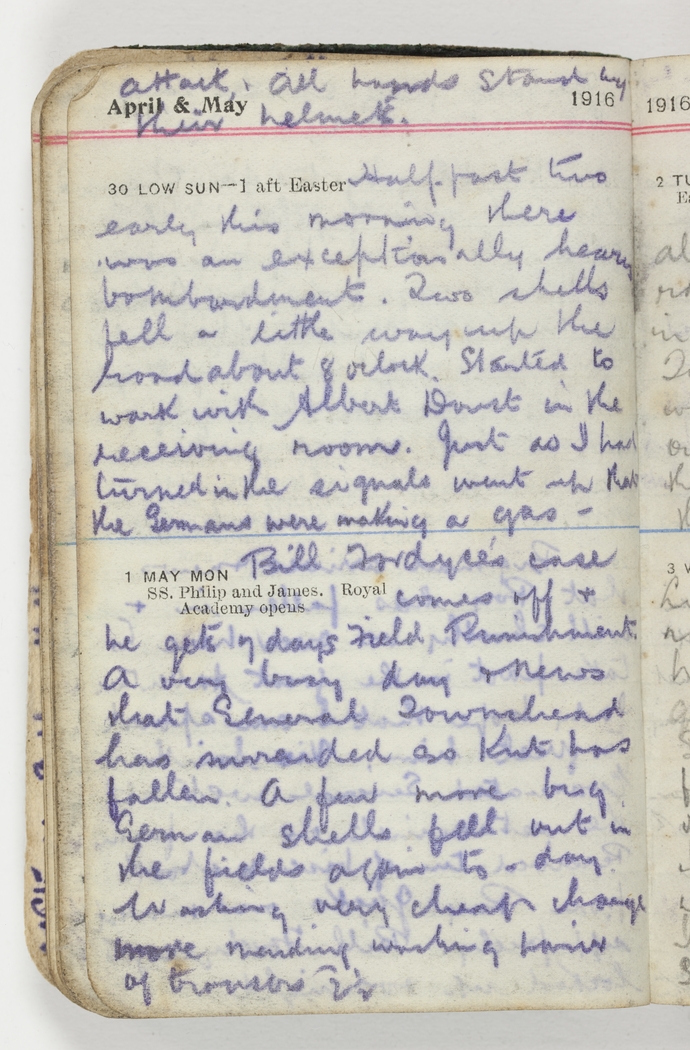 attack, all hands stand by
April & May 1916
their helmets.
30 LOW SUN—1 aft Easter Half-past two
early this morning there
was an exceptionally heavy
bombardment. Two shells
fell a little way up the
road about 8 oclock. Started to
work with Albert Doust in the
receiving room. Just as I had
turned in the signals went up that
the Germans were making a gas -
1 MAY MON Bill Fordyce's case
SS. Philip and James. Royal
Academy opens
comes off &
he gets 7 days Field Punishment.
A very busy day & news
that General Townshend
has surrended so Kut has
fallen. A few more big
German shells fell out in
the fields again to-day.
Washing very cheap charge
more mending washing pair
of trousers
1916
2 TU
3 W